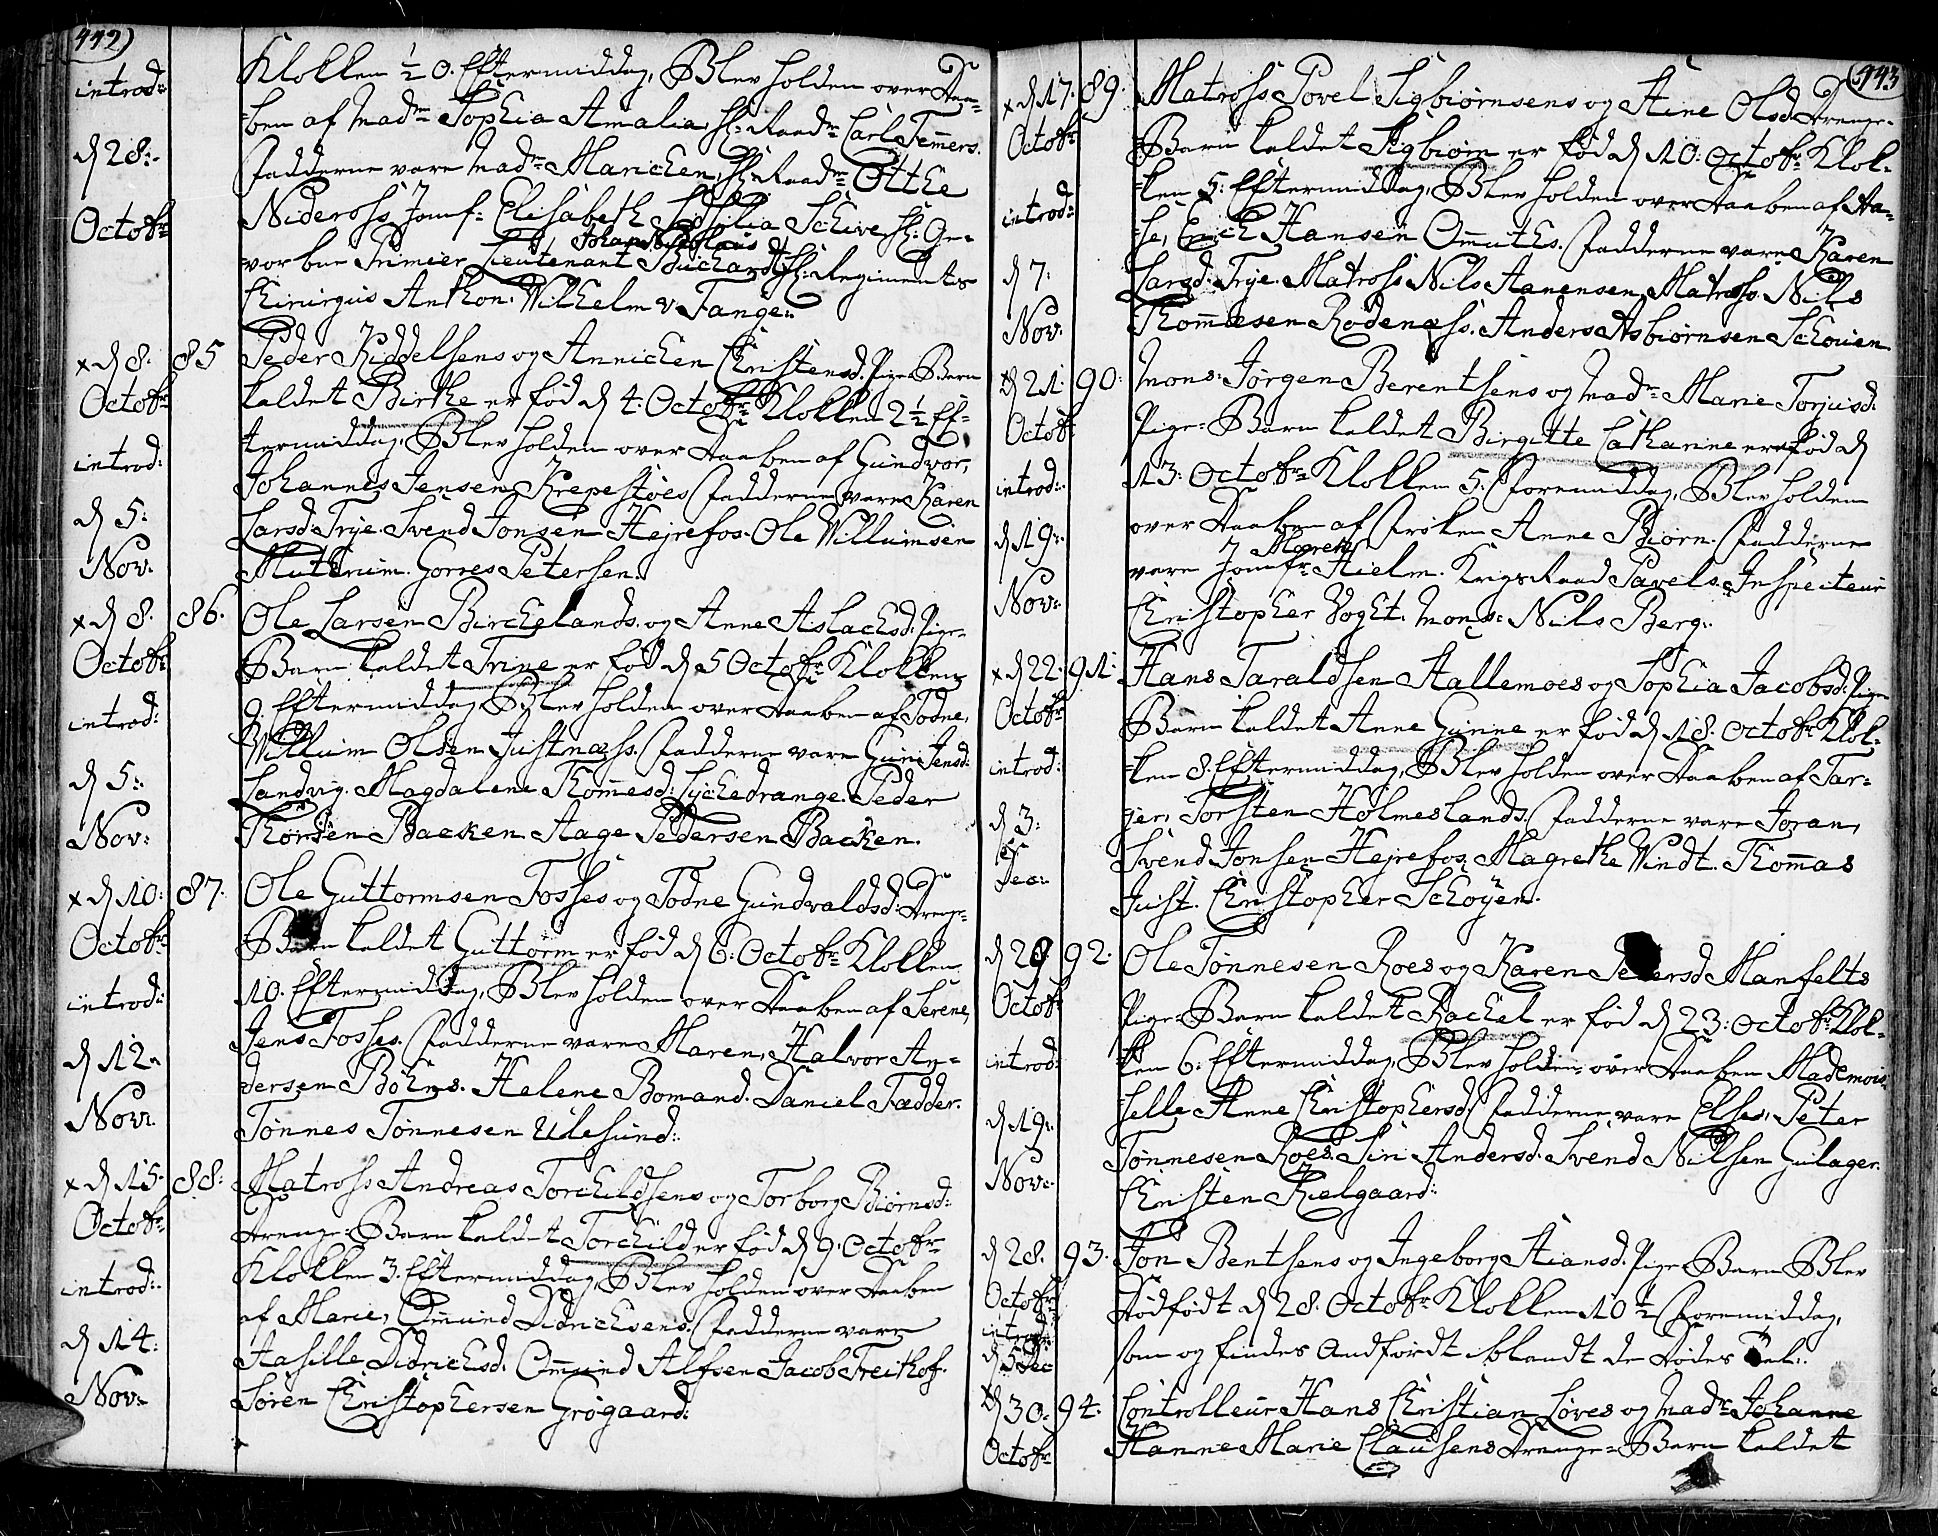 442)
introd:
d 28:
Octobr
Klokken ½ 0. Eftermiddag, Blev holden over Daa=
ben af Madme Sophia Amalia, Hr: Raadm: Carl Temmers.
Fadderne vare Madme Marichen, Hr: Raadm: Otthe
Niderosss Jomf: Elisabeth Sessilia Schive, Hr: Ge=
Johan Nicolaus
vorben Primier Lieutenant Buchardt, Hr: Regiments
Chirurgus Anthon: Wilhelm v Tangen.
x d 8. 85
Octobr
introd:
d 5:
Nov:
Peder Kiddelsens og Annichen Christensd. Pige-Barn
kaldet Birthe er fød d 4: Octobr Klokken 2½ Ef=
termiddag, Blev holden over Daaben af Gundvor,
Johannes Jensen Krepestøes Fadderne vare Karen
Larsd: Trye. Svend Jonsen Hejrefos. Ole Willumsen
Gorres Petersen.
x d 8. 86.
Octobr
introd:
d 5:
Nov:
Ole Larsen Birchelands. og Anne Aslachsd: Pige=
Barn kaldet Trine er fød d 5 Octobr Klokken
9 Eftermiddag, Blev holden over Daaben af Todne,
Willum Olsen Justnæss. Fadderne vare Guni Jensd:
Sandvig. Magdalene Thommesd: Lychedrange. Peder
Thorsen Backen Aage Pedersen Backen.
x d 10: 87.
Octobr
introd:
d 12.
Nov:
Ole Guttormsen Fosses og Todne Gundvaldsd: Drenge=
Barn kaldet Guttorm er fød d 6: Octobr Klokken
10. Eftermiddag, Blev holden over Daaben af Serene,
Jens Fosses. Fadderne vare Maren, Halvor An=
dersen Bøhns. Helene Bomand. Daniel Fædder.
Tønnes Tønnesen Ulesund:
x d 15. 88:
Octobr
introd:
d 14:
Nov:
Matross Andreas Torchildsens og Torborg Biørnsd:
Drenge-Barn kaldet Torchild er fød d 9: Octobr
Klokken 3. Eftermiddag, Blev holden over Daaben
af Marie, Ommund Didrichsens. Fadderne vare
Aasille Didrichsd. Ommund Alfsen Jacob Freithof.
Søren Christophersen Grøgaard:
443
x d 17. 89.
Octobr
introd:
d 7:
Nov:
Matross Povel Sigbiørnsens og Aine Olsd Drenge=
Barn kaldet Sigbiørn er fød d 10: Octobr Klok=
ken 5: Eftermiddag, Blev holden over Daaben af Aa=
se, Erich Hansen Fadderne vare Karen
Larsd: Trye. Matross Nils Aanensen, Matross. Nils
Thommesen Rødenæss. Anders Asbiørnsen Schouen.
x d 21. 90:
Octobr
introd:
d 19:
Nov:
Mons: Jørgen Berentsens og Madme Marie Torjusd:
Pige-Barn kaldet Birgitte Catharine er fød d
13: Octobr Klokken 5. Foremiddag, Blev holden
over Daaben af Frøken Anne Biørn. Fadderne
Maren
vare Jomfr Hielm. Krigs Raad Pavels. Inspecteur
Christopher Voght. Mons: Nils Berg:
x d 22. 91:
Octobr
introd:
d 3:
Dec:
Hans Taraldsen Hallemoes og Sophia Jacobsd: Pige
Barn kaldet Anne Gunne er fød d 18. Octobr Klok=
ken 8. Eftermiddag, Blev holden over Daaben af Tar=
jer, Torsten Holmeslands. Fadderne vare Joran,
Svend Jonsen Hejrefos. Magrethe Windt. Thommas
Juist. Christopher Schøyen.
d 29. 92.
Octobr
introd:
d 19:
Nov:
Ole Tønnesen Roes og Karen Pedersd Manfelts
Pige-Barn kaldet Rachel er fød d 23: Octobr Klok=
ken 6: Eftermiddag, Blev holden over Daaben Mademoi=
selle Anne Christophersd: Fadderne vare Else, Peter
Tønnesen Roes. Siri Andersd. Svend Nilsen Gulager.
Christen Kielgaard:
d 28. 93.
Octobr
introd:
d 5 Dec
Jon Bentsens og Ingeborg Stiansd. Pige-Barn Blev
Dødfødt d 28. Octobr Klokken 10½ Foremiddag,
som og findes Andførdt iblandt de Dødes Tal:
x d 30. 94.
Octobr
Controlleur Hans Christian Løves og Madme Johanne
Hanne Marie Clausens Drenge-Barn kaldet